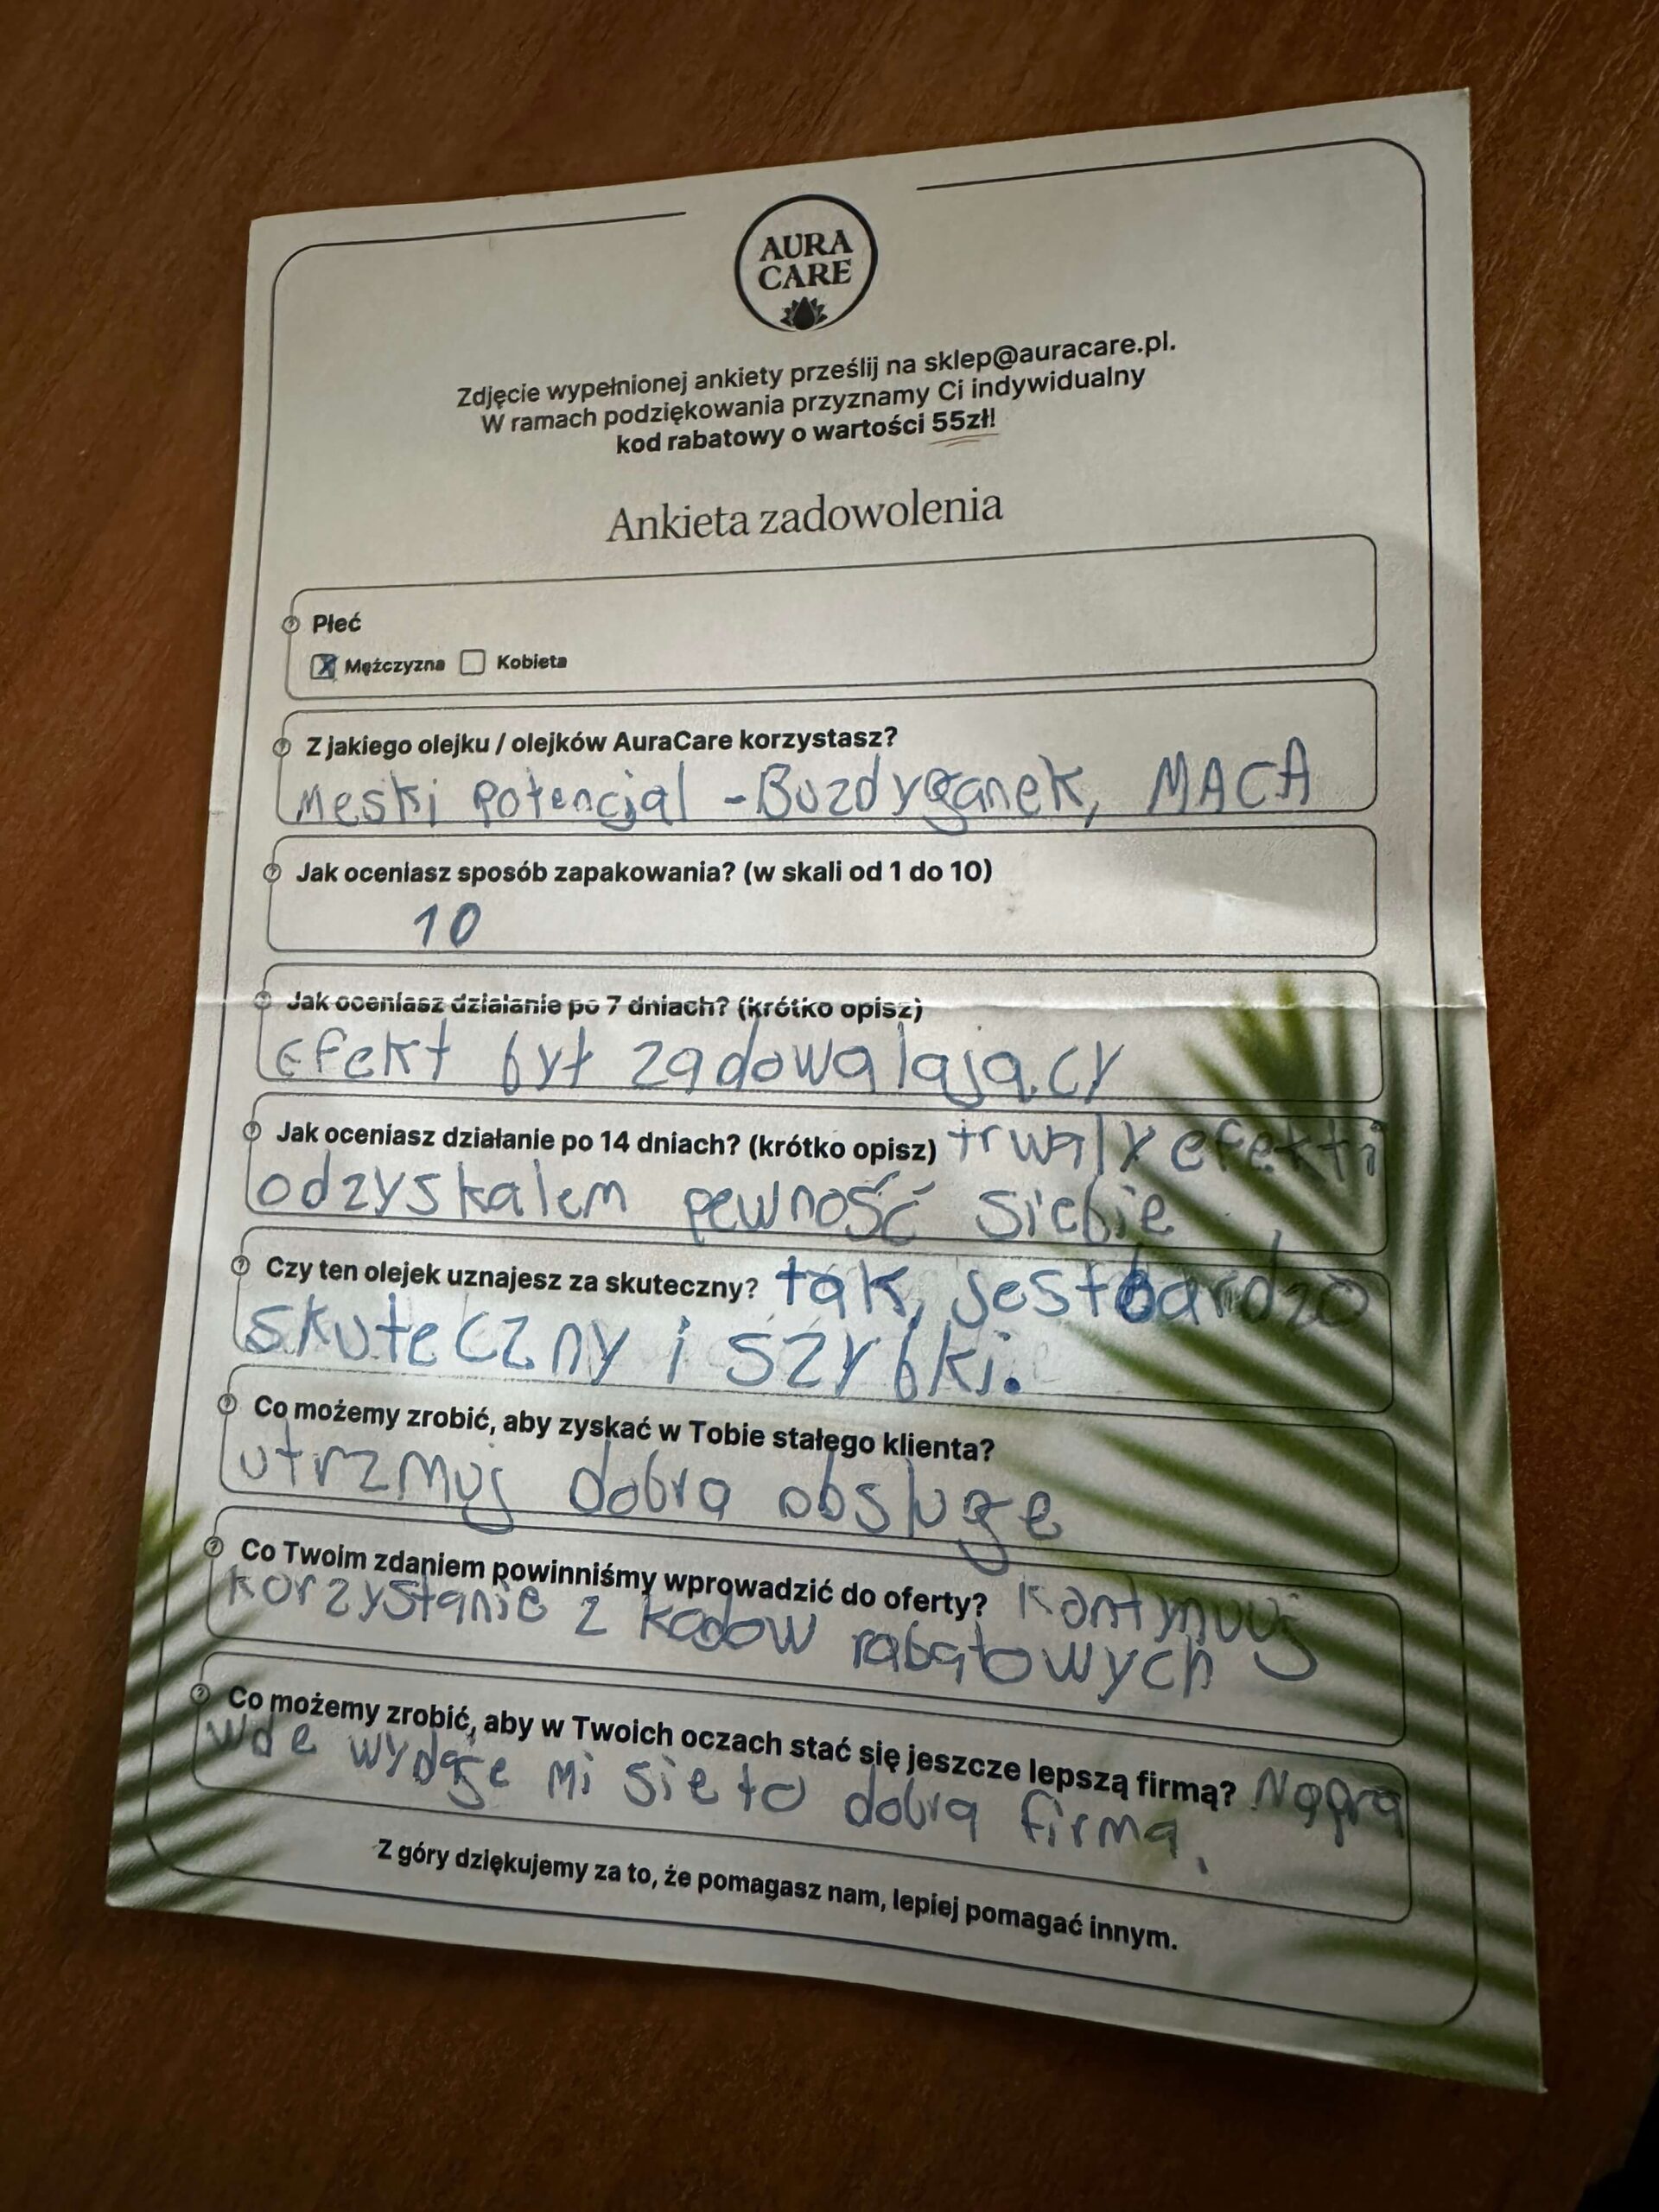 AURA
CARE
Zdjęcie wypełnionej ankiety prześlij na sklep@auracare.pl.
W ramach podziękowania przyznamy Ci indywidualny
kod rabatowy o wartości 55zł!
Ankieta zadowolenia
Płeć
X Mężczyzna Kobieta
Z jakiego olejku / olejków AuraCare korzystasz?
Meski potencjal - Buzdyganek, MACA
Jak oceniasz sposób zapakowania? (w skali od 1 do 10)
10
Jak oceniasz działanie po 7 dniach? (krótko opisz)
Efekt był zadowalający
Jak oceniasz działanie po 14 dniach? (krótko opisz) trwaly efekt i
odzyskalem pewność siebie
Czy ten olejek uznajesz za skuteczny? tak, jest bardzo
skuteczny i szybki.
Co możemy zrobić, aby zyskać w Tobie stałego klienta?
utrzmuj dobra obsluge
Co Twoim zdaniem powinniśmy wprowadzić do oferty? Kontynuuj
korzystanie z kodow rabatowych
Co możemy zrobić, aby w Twoich oczach stać się jeszcze lepszą firmą? Napra
wde wydaje mi sie to dobra firma.
Z góry dziękujemy za to, że pomagasz nam, lepiej pomagać innym.